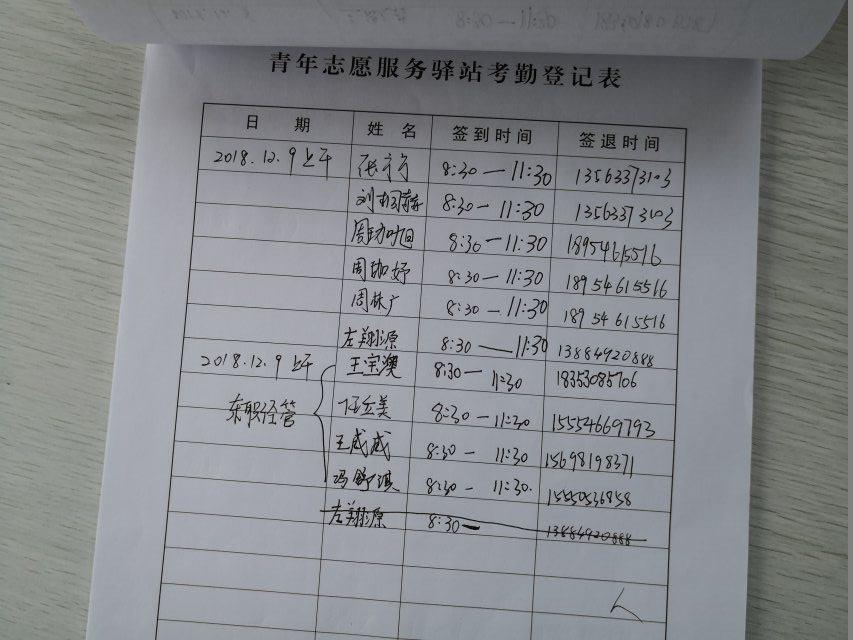 青年志愿服务驿站考勤登记表
日 期 姓 名 签到时间 签退时间
2018.12.9上午 8:30—11:30 13563373103
刘 8:30—11:30 13563373103
周 旭 8:30—11:30 18954615516
周珈妤 8:30—11:30 18954615516
周林广 8:30—11:30 18954615516
左翔源 8:30—11:30 13884920888
2018.12.9上午 王宝澳 8:30—11:30 18353085706
东职经营 任立美 8:30—11:30 15554669793
王威威 8:30—11:30 15698198371
冯舒淇 8:30—11:30. 15550536858
左翔源 8:30— 13884920888